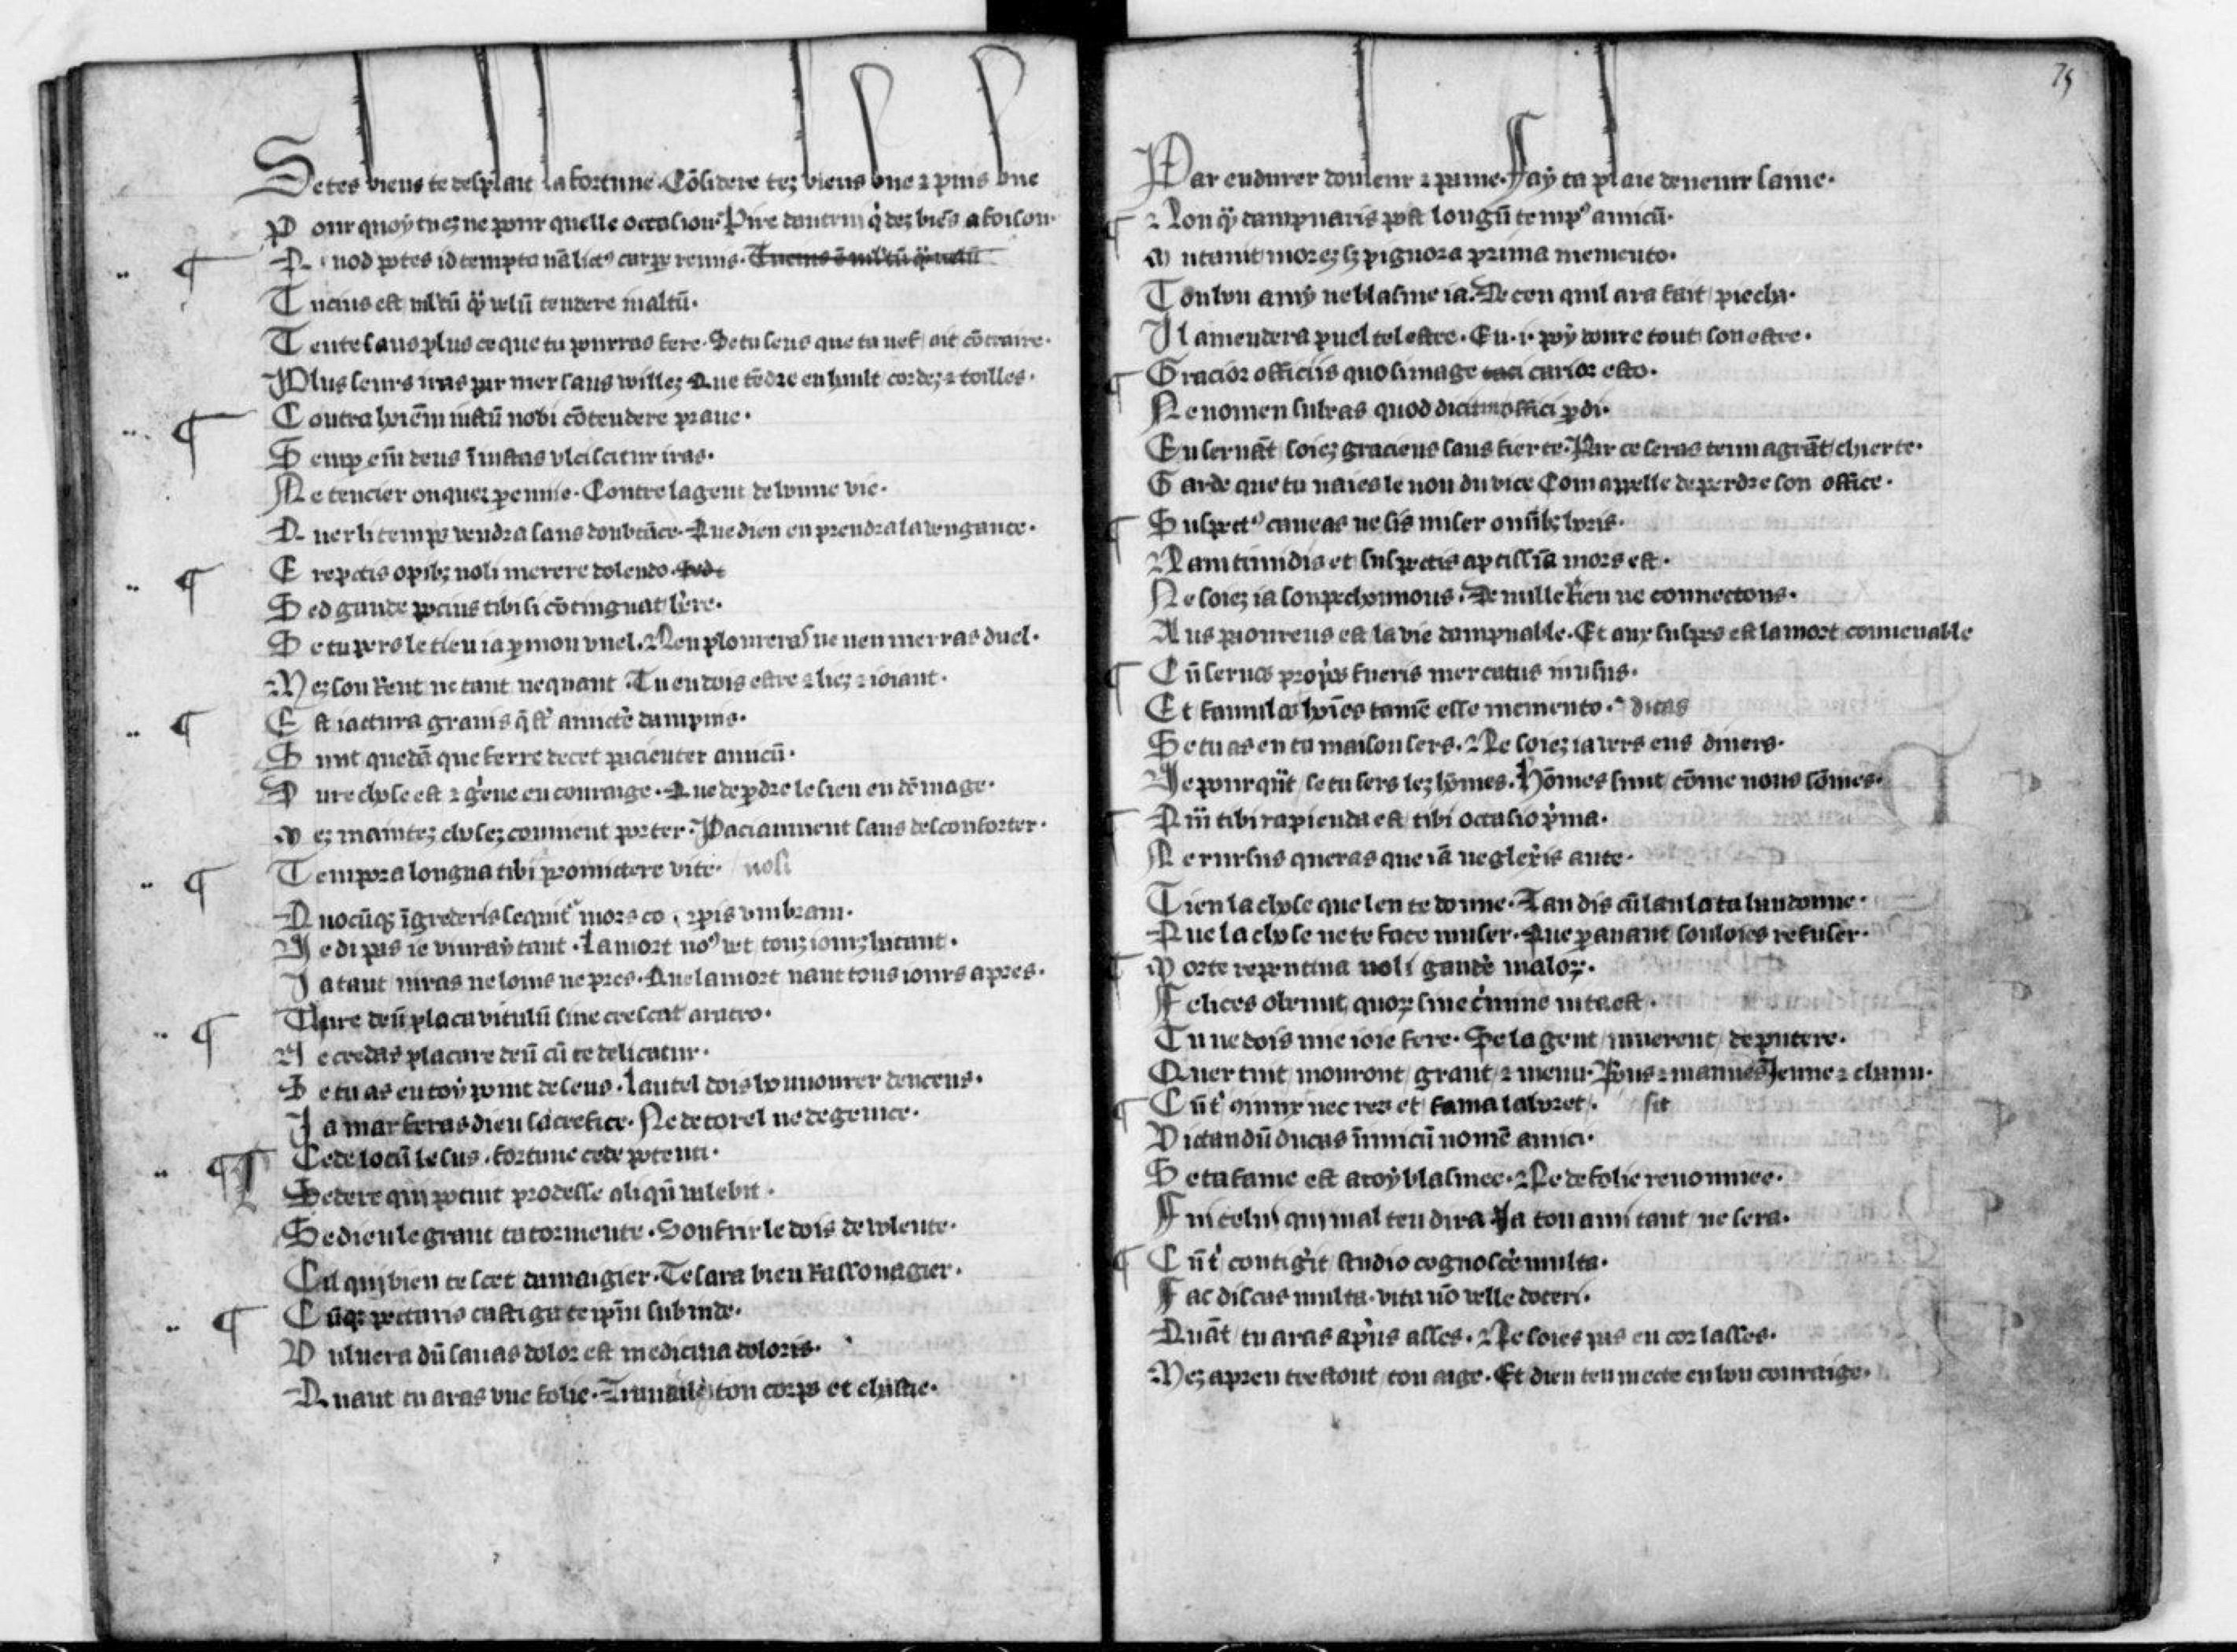 Se tes biens te desplait la fortune. Cõsidere tez biens vne ⁊ puis vne
Pour quoy tu ez ne pour quelle occasion. Pire dautrui q̇ dez biẽs a foison.
¶ Quod potes id tempta nã lict⁹ carpe remis. Tucius ẽ
Tucius est ml'tũ q̃ velũ tendere inaltũ.
Tente sans plus ce que tu pourras fere. Se tu sens que ta nef ait cõtraire.
Plus seurs iras par mer sans willez Que tẽdre en hault cordez ⁊ toilles.
¶ Contra hoiẽm iustũ noli cõtendere praue.
Semp em̃ deus iniustas vlciscitur iras.
Ne tencier onquez pennie. Contre la gent de bonne vie.
Quer li temps vendra sans doubtãce. Que dieu en prendra la vengance.
¶ Ereptis opibꝫ noli merere dolendo. Sed
Sed gaude pocius tibi si cõtinguat h're.
Se tu pers le tieu ia p mon vuel. Neu ploureras ne neu merras duel.
Mez son Rent ne tant ne quant. Tu en dois estre ⁊ liez ⁊ ioiant.
¶ Est iactura grauis q̃ st' amictè dampnis.
Sunt quedã que ferre decet pacienter amicũ.
Dure chose est ⁊ g'eue en couraige. Que de pdre le sien en dõmage.
Mez maintez chosez conuient porter. Paciaument sans desconforter.
¶ Tempora longua tibi promictere vite. noli
Quocũqꝫ ĩgrederis sequit' mors corpis vmbram.
Ne di pas ie viuray tant. La mort no⁹ vet touz iourz hutant.
Ja tant niras ne loins ne pres. Que la mort naut tous iours apres.
¶ Thure deũ placa vitulũ sine crescat aratro.
Ne credas placare deũ cũ te delicatur.
Se tu as en toy point de sens. Lautel dois honnourer dencens.
Ja mar feras dieu sacrefice. Ne de torel ne de genice.
¶ Cede locũ lesus. fortune cede potenti.
Ledere qui potuit prodesse aliquñ valebit.
Se dieu le grant ta tormente. Soufrir le dois de volente.
Cil qui bien te scet damaigier. Te sara bien Rassouagier.
¶ Cũqꝫ peccaris castiga te ip̃m subinde.
Vulnera dũ sanas dolor est medicina doloris.
Quant tu aras vne folie. Trauaille ton corps et chastie.
75
Par endurer douleur ⁊ paine. Fay ta plaie deuenir saine.
¶ Non q̃ dampnaris post longũ temp⁹ amicũ.
Mutauit morez sꝫ pignora prima memento.
Ton bon amy ne blasme ia. De ceu quil ara fait piecha.
Il amendera puel tel estre. En .i. poy donre tout son estre.
¶ Gracior officiis quo simage carior esto.
Ne nomen subeas quod dicitur offici pdi.
En seruãt soiez gracieus sans fierte. Par ce seras tenu a grãt chierte.
Garde que tu naies le non du vice Com apelle de perdre son office.
¶ Suspect⁹ caueas ne sis miser omibꝫ horis.
Nam timidis et suspectis aptissĩa mors est.
Ne soiez ia soupechonnous. De nulle Rien ne connectous.
Aus paoureus est la vie dampnable. Et aux suspes est la mort conuenable
¶ Cũ seruos propos fueris mercatus in vsus.
Et famulos hoĩes tamẽ esse memento. dicas
Se tu as en ta maison sers. Ne soiez ia vers eus diuers.
Ne pourqũt se tu sers lez hõmes. Hõmes sunt cõme nous sõmes.
¶ Qm̃ tibi rapienda est tibi occasio p'ma.
Ne rursus queras que iã neglexis ante.
Tien la chose que len te donne. Tandis
Que la chose ne te face muser. Que p auant souloies refuser.
¶ Morte repentina noli gaude' maloꝝ.
Felices obeunt quoꝝ sine c'mine uita est.
Tu ne dois mie ioie fere. Se la gent muerent de putere.
Quer tuit mouront grant ⁊ menu. Bons ⁊ mauuês Jeune ⁊ chanu.
¶ Cũ t' coniux nec res et fama laboret. sit
Vitandũ ducas inimicũ nomẽ amici.
Se ta fame est a toy blasmee. Ne de folie renommee.
Fui celui qui mal ten dira Ja ton ami tant ne sera.
¶ Cũ t' contig'it studio cognosce' multa.
Fac discas multa. vita nõ velle doceri.
Quãt tu aras ap'is asses. Ne soies pas en cor lasses.
Mez apren trestout ton aige. Et dieu ten mecte en bon couraige.